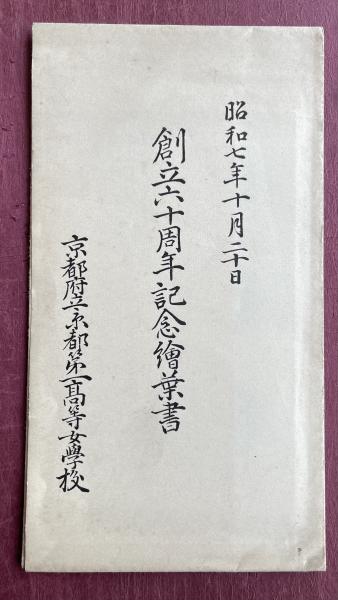 昭和七年十月二十日
創立六十周年記念繪葉書
京都府立京都第一高等女學校